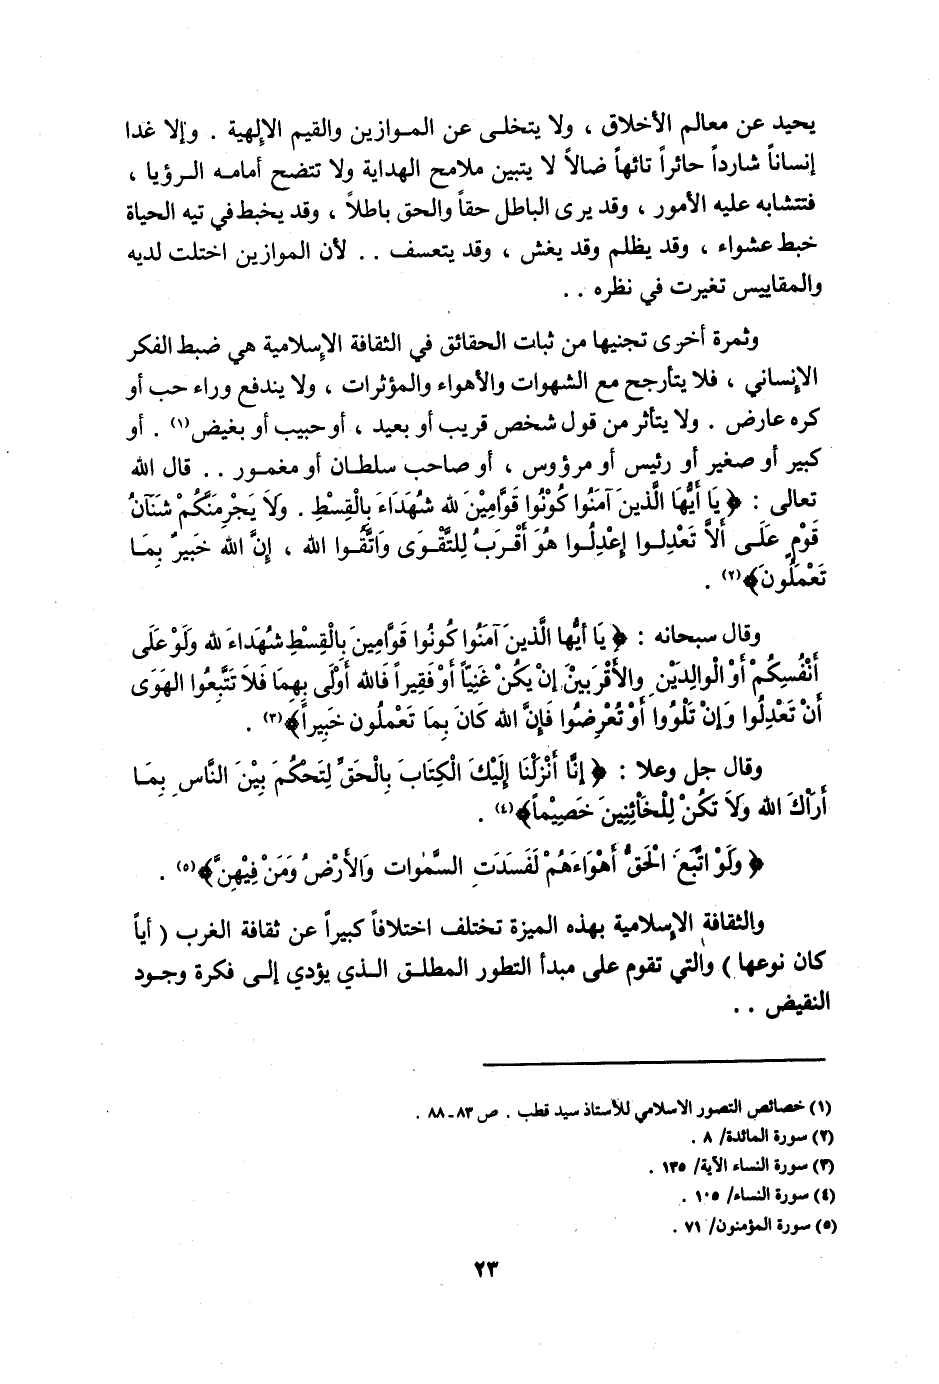 يحيد عن معالم الأخلاق ، ولا يتخلى عن الموازين والقيم الإلهية . وإلا غدا
إنساناً شارداً حائراً تائهاً ضالاً لا يتبين ملامح الهداية ولا تتضح أمامه الرؤيا ،
فتتشابه عليه الأمور ، وقد يرى الباطل حقاً والحق باطلاً ، وقد يخبط في تيه الحياة
خبط عشواء ، وقد يظلم وقد يغش ، وقد يتعسف . . لأن الموازين اختلت لديه
والمقاييس تغيرت في نظره . .
وثمرة أخرى تجنيها من ثبات الحقائق في الثقافة الإسلامية هي ضبط الفكر
الإنساني ، فلا يتأرجح مع الشهوات والأهواء والمؤثرات ، ولا يندفع وراء حب أو
كره عارض . ولا يتأثر من قول شخص قريب أو بعيد ، أو حبيب أو بغيض(١) . أو
كبير أو صغير أو رئيس أو مرؤوس ، أو صاحب سلطان أو مغمور . . قال الله
تعالى : ﴿ يَا أَيُّهَا الَّذينَ آمَنُوا كُونُوا قَوَّامِيْنَ لله شُهَدَاءَ بِالْقِسْطِ . وَلاَ يَجْرِمَنَّكُمْ شَنَآنُ
قَوْمٍ عَلَى أَلاَّ تَعْدِلوا إعْدِلُوا هُوَ أَقْرَبُ لِلتَّقْوَى وَاتَّقُوا الله ، إِنَّ الله خَبيرٌ بِمَا
تَعْمَلُونَ﴾(٢) .
وقال سبحانه : ﴿ يَا أيُّها الَّذينَ آمَنُوا كُونُوا قَوَّامِينَ بِالْقِسْطِ شُهَدَاءَ لله وَلَوْ عَلَى
أَنْفُسِكُمْ أَوْ الْوالِدَيْنِ والأَقْرَبينْ إنْ يَكُنْ غَنِيّاً أَوْ فَقيراً فَالله أَوْلَى بِهِمَا فَلاَ تَتَّبِعُوا الهَوَى
أَنْ تَعْدِلُوا وَإِنْ تَلْوُوا أَوْ تُعْرِضُوا فَإِنَّ الله كَانَ بِمَا تَعْمَلُون خَبِيراً﴾(٣) .
وقال جل وعلا : ﴿ إنَّا أَنْزَلْنَا إِلَيْكَ الْكِتَابَ بِالْحَقِّ لِتَحْكُمَ بِيْنَ النَّاسِ بِمَا
أَرَاْكَ الله وَلاَ تَكُنْ لِلْخَاْئِنِينَ خَصِيْماً﴾(٤) .
﴿ وَلَوْ اتَّبَعَ الْحَقُّ أَهْوَاءَهُمْ لَفَسَدَتِ السَّمٰوات وَالأَرْضُ وَمَنْ فِيْهِنَّ﴾(٥) .
والثقافة الإسلامية بهذه الميزة تختلف اختلافاً كبيراً عن ثقافة الغرب ( أياً
كان نوعها ) والتي تقوم على مبدأ التطور المطلق الذي يؤدي إلى فكرة وجود
النقيض . .
(١) خصائص التصور الاسلامي للأستاذ سيد قطب . ص ٨٣ـ ٨٨ .
(٢) سورة المائدة/ ٨ .
(٣) سورة النساء الآية/ ١٣٥ .
(٤) سورة النساء/ ١٠٥ .
(٥) سورة المؤمنون/ ٧١ .
٢٣